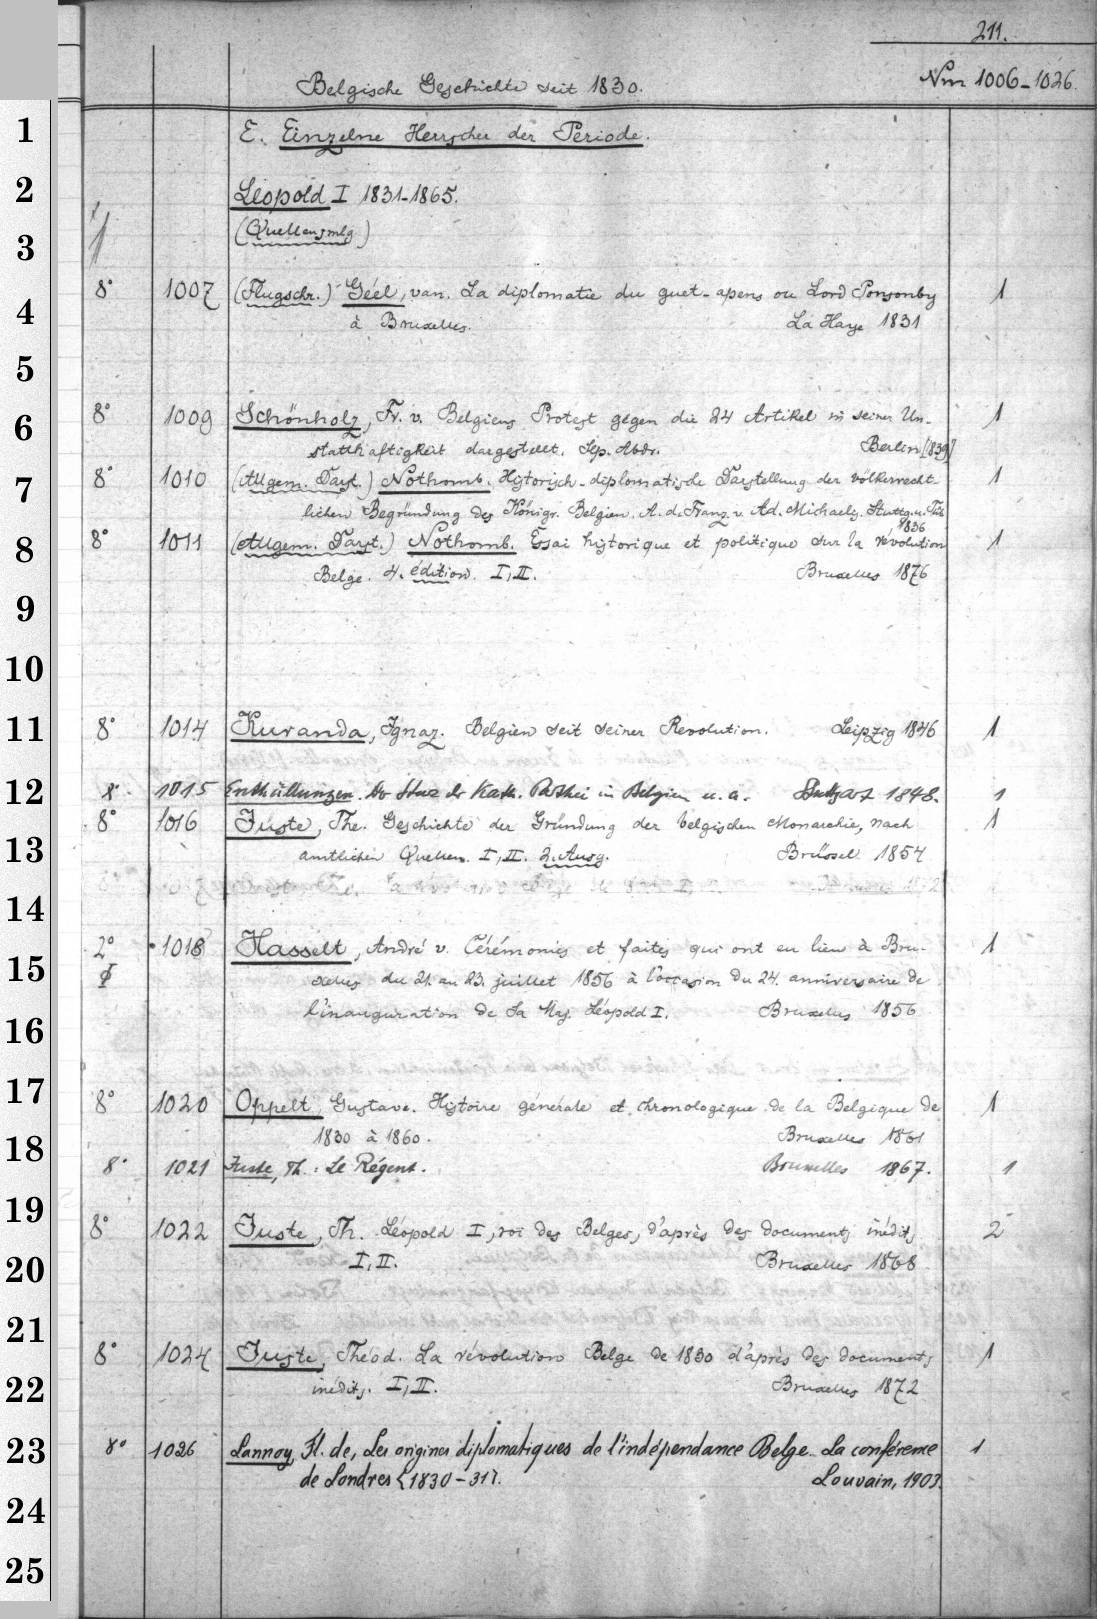 211.
Belgische Geschichte seit 1830. Nrn 1006-1026.
1 E. Einzelne Herrscher der Periode.
2 Léopold I 1831-1865.
3 (Quellensmlg)
8° 1007 (Flugschr.) Géel, van. La diplomatie du guet-apens ou Lord Ponsonby 1
4 à Bruxelles. La Haye 1831
5
8° 1009 Schönholz, Fr. v. Belgiens Protest gegen die 24 Artikel in seiner Un- 1
6
statthaftigkeit dargestellt. Sep. Abdr. Berlin [1839]
8° 1010 (Allgem. Darst.) Nothomb. Historisch-diplomatische Darstellung der völkerrecht- 1
7
lichen Begründung des Königr. Belgien. A. d. Franz. v. Ad. Michaelis. Stuttg. u. Tüb
1836
8° 1011 (Allgem. Darst.) Nothomb. Essai historique et politique sur la révolution 1
8
Belge. 4. édition. I, II. Bruxelles 1876
9
10
11 8° 1014 Kuranda, Ignaz. Belgien seit seiner Revolution. Leipzig 1846 1
12 8° 1015 Enthüllungen. der kath. Parthei in Belgien u. a. Stuttgart 1848. 1
8° 1016 Juste, The. Geschichte der Gründung der belgischen Monarchie, nach 1
13 amtlichen Quellen. I, II. 2. Ausg. Brüssel 1854
14
2° 1018 Hasselt, André v. Cérémonies et faites qui ont eu lieu à Bru- 1
15 xelles du 21. au 23. juillet 1856 à l'occasion du 24. anniversaire de
l'inauguration de Sa Maj. Léopold I. Bruxelles 1856
16
17
8° 1020 Oppelt, Gustave. Histoire générale et chronologique de la Belgique de 1
1830 à 1860. Bruxelles 1861
18
8° 1021 Juste, Th.: Le Régent. Bruxelles 1867. 1
19
8° 1022 Juste, Th. Léopold I, roi des Belges, d'après des documents inédits 2
20 I, II. Bruxelles 1868
21
8° 1024 Juste, Théod. La révolution Belge de 1830 d'après des documents 1
22 inédits. I, II. Bruxelles 1872
23 8° 1026 Lannoy, Fl. de, Les origines diplomatiques de l'indépendance Belge. La conférence 1
de Londres (1830-31). Louvain, 1903.
24
25